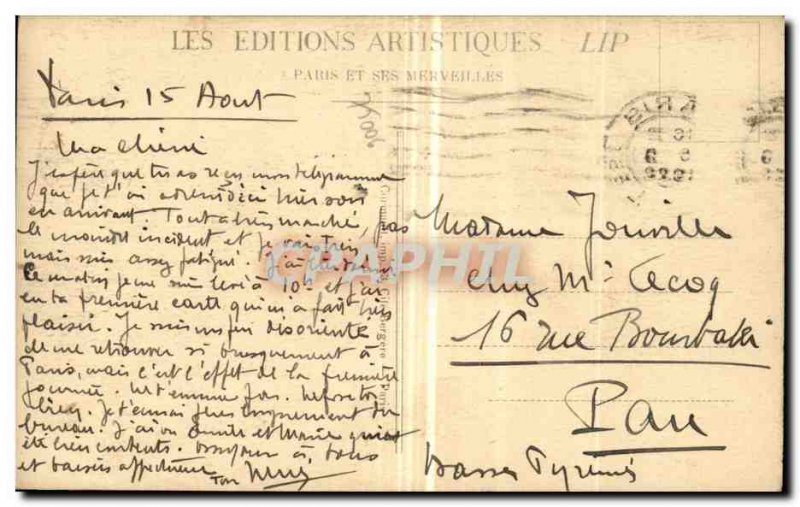 LES EDITIONS ARTISTIQUES LIP
PARIS ET SES MERVEILLES
Paris 15 Aout
Ma chérie
J'espère que tu as reçu mon télégramme
que je t'ai adressé ici hier soir
en arrivant Tout a très bien marché, pas
le moindre incident et je vais très
mais suis assez fatigué. J'ai
Ce matin je me suis levé à 10h et j'ai
eu ta première carte qui m'a fait très
plaisir. Je suis un peu désorienté
de me retrouver si brusquement à
Paris, mais c'est l'effet de la première
journée. Ne t'ennuie pas. Repose toi
bien. Je t'écrirai plus longuement du
bureau. J'ai vu et Marie qui ont
été bien contents. à tous
et baisers affectueux
Ton
Madame Jouville
chez Mr Cecoq
16 rue Bourbaki
Pau
Basses Pyrénées
PARIS
CPAPHIL